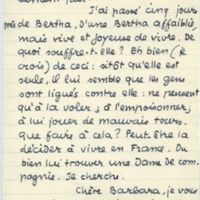 J'ai passé cinq jours
près de Bertha, d'une Bertha affaiblie,
mais vive et joyeuse de vivre. De
quoi souffre-t-elle ? Eh bien (je
crois) de ceci : sitôt qu'elle est
seule, il lui semble que les gens
sont ligués contre elle : ne pensent
qu'à la voler, à l'empoisonner, à
lui jouer de mauvais tours.
Que faire à cela ? Peut-être la
décider à vivre en France. Ou
bien lui trouver une Dame de com-
pagnie. Je cherche.
Chère Barbara, je vous